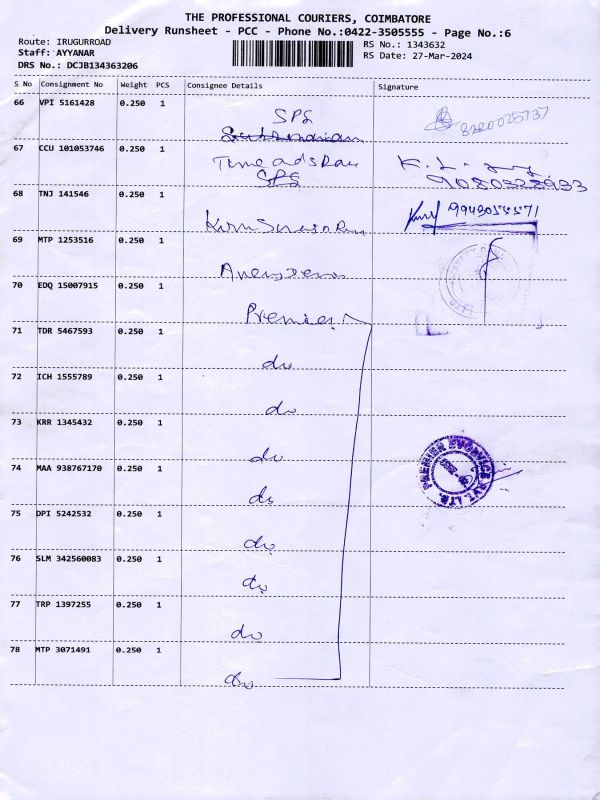 THE PROFESSIONAL COURIERS, COIMBATORE
Delivery Runsheet - PCC - Phone No.:0422-3505555 - Page No.:6
Route: IRUGURROAD
Staff: AYYANAR
DRS No.: DCJB134363206
RS No.: 1343632
RS Date: 27-Mar-2024
S No Consignment No Weight PCS Consignee Details Signature
66 VPI 5161428 0.250 1 SPS
67 CCU 101053746 0.250 1
SPS 9080328933
68 TNJ 141546 0.250 1 9943055571
69 MTP 1253516 0.250 1
70 EDQ 15007915 0.250 1 Premier
71 TDR 5467593 0.250 1 do
72 ICH 1555789 0.250 1 do
73 KRR 1345432 0.250 1 do
74 MAA 938767170 0.250 1 do
75 DPI 5242532 0.250 1 do
76 SLM 342560083 0.250 1 do
77 TRP 1397255 0.250 1 do
78 MTP 3071491 0.250 1 do
PREMIER EVOLVICS PVT. LTD.